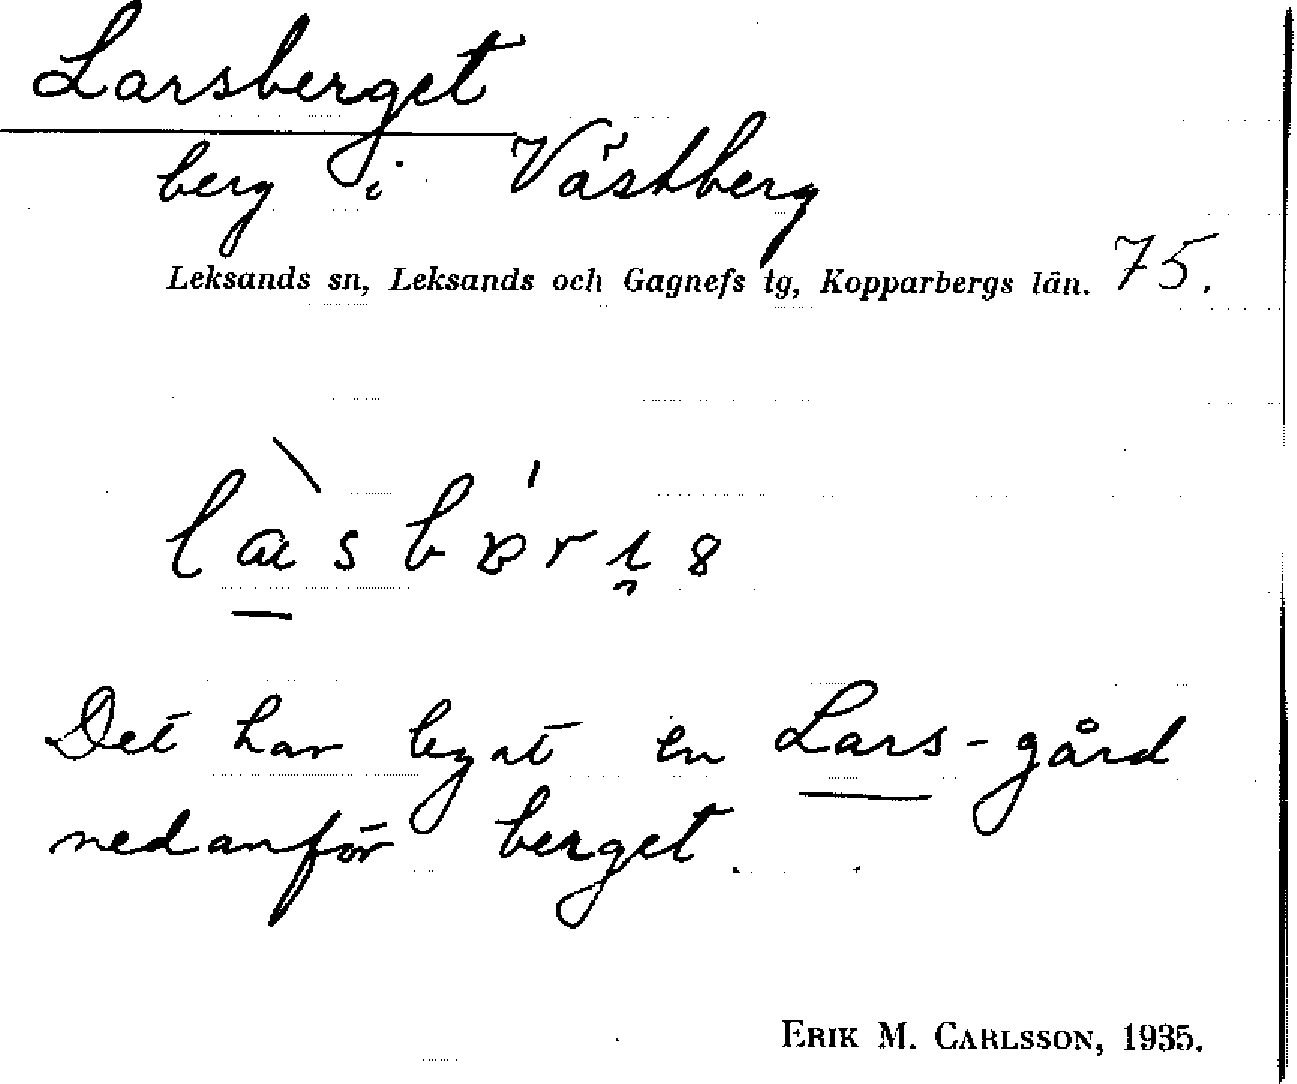 Larsberget
berg i Västberg
Leksands sn, Leksands och Gagnefs tg, Kopparbergs län. 75.
Det har legat en Lars-gård
nedanför berget.
ERIK M. CARLSSON, 1935.